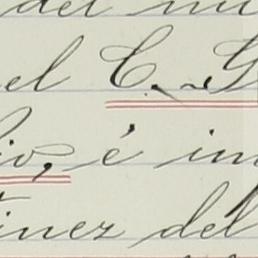 del
el C. G
io, é in
inez del